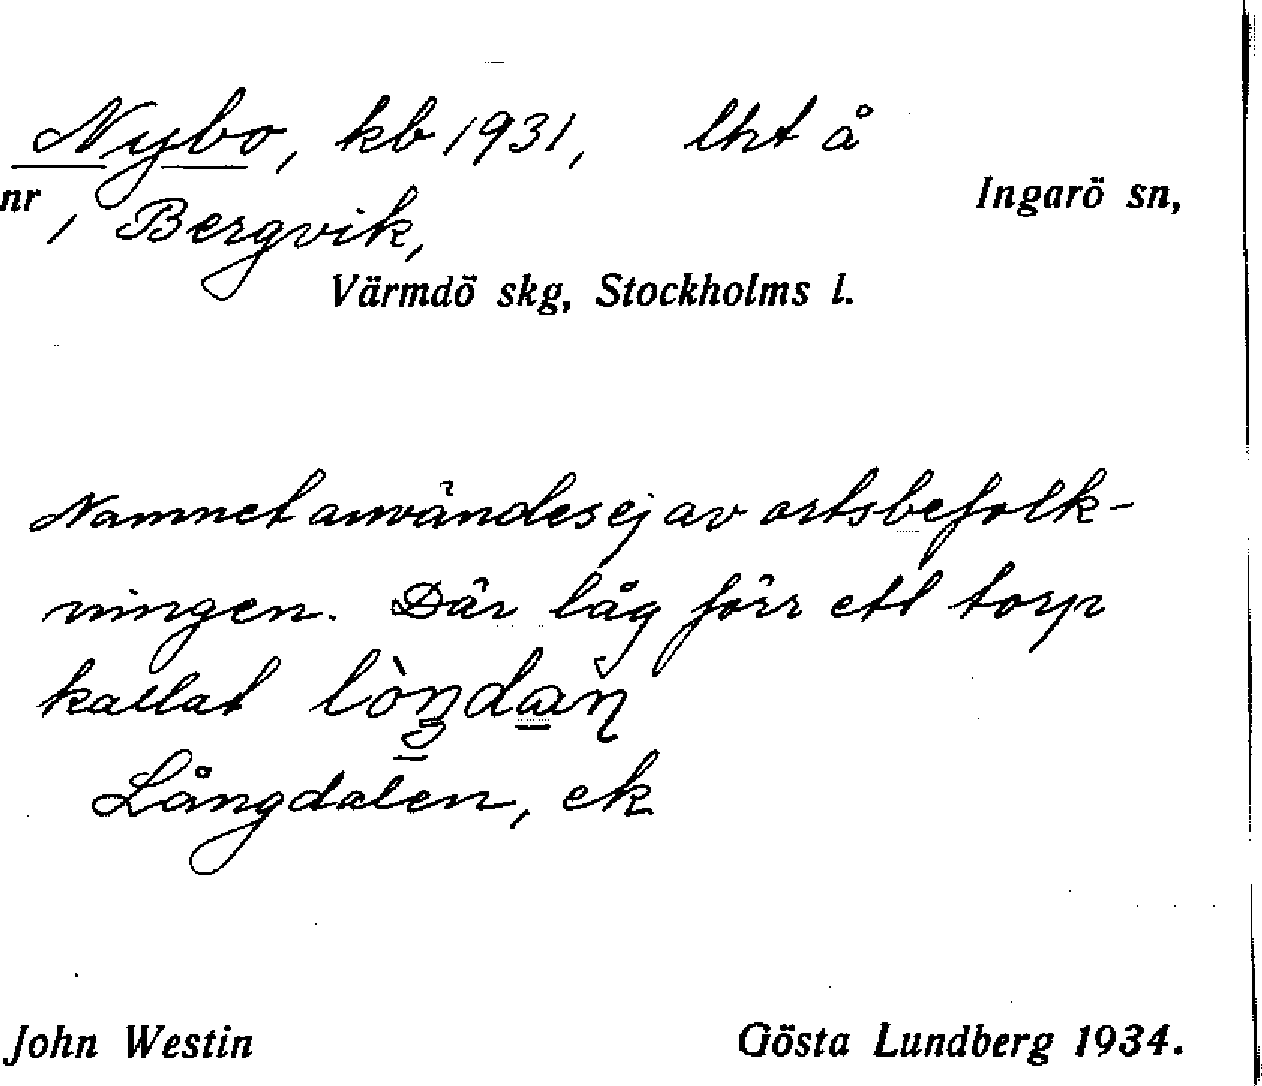 Nybo, kb 1931, lht å
nr 1 Bergvik,
Ingarö sn,
Värmdö skg, Stockholms l.
Namnet användes ej av ortsbefolk-
ningen. Där låg förr ett torp
kallat
Långdalen, ek
John Westin
Gösta Lundberg 1934.